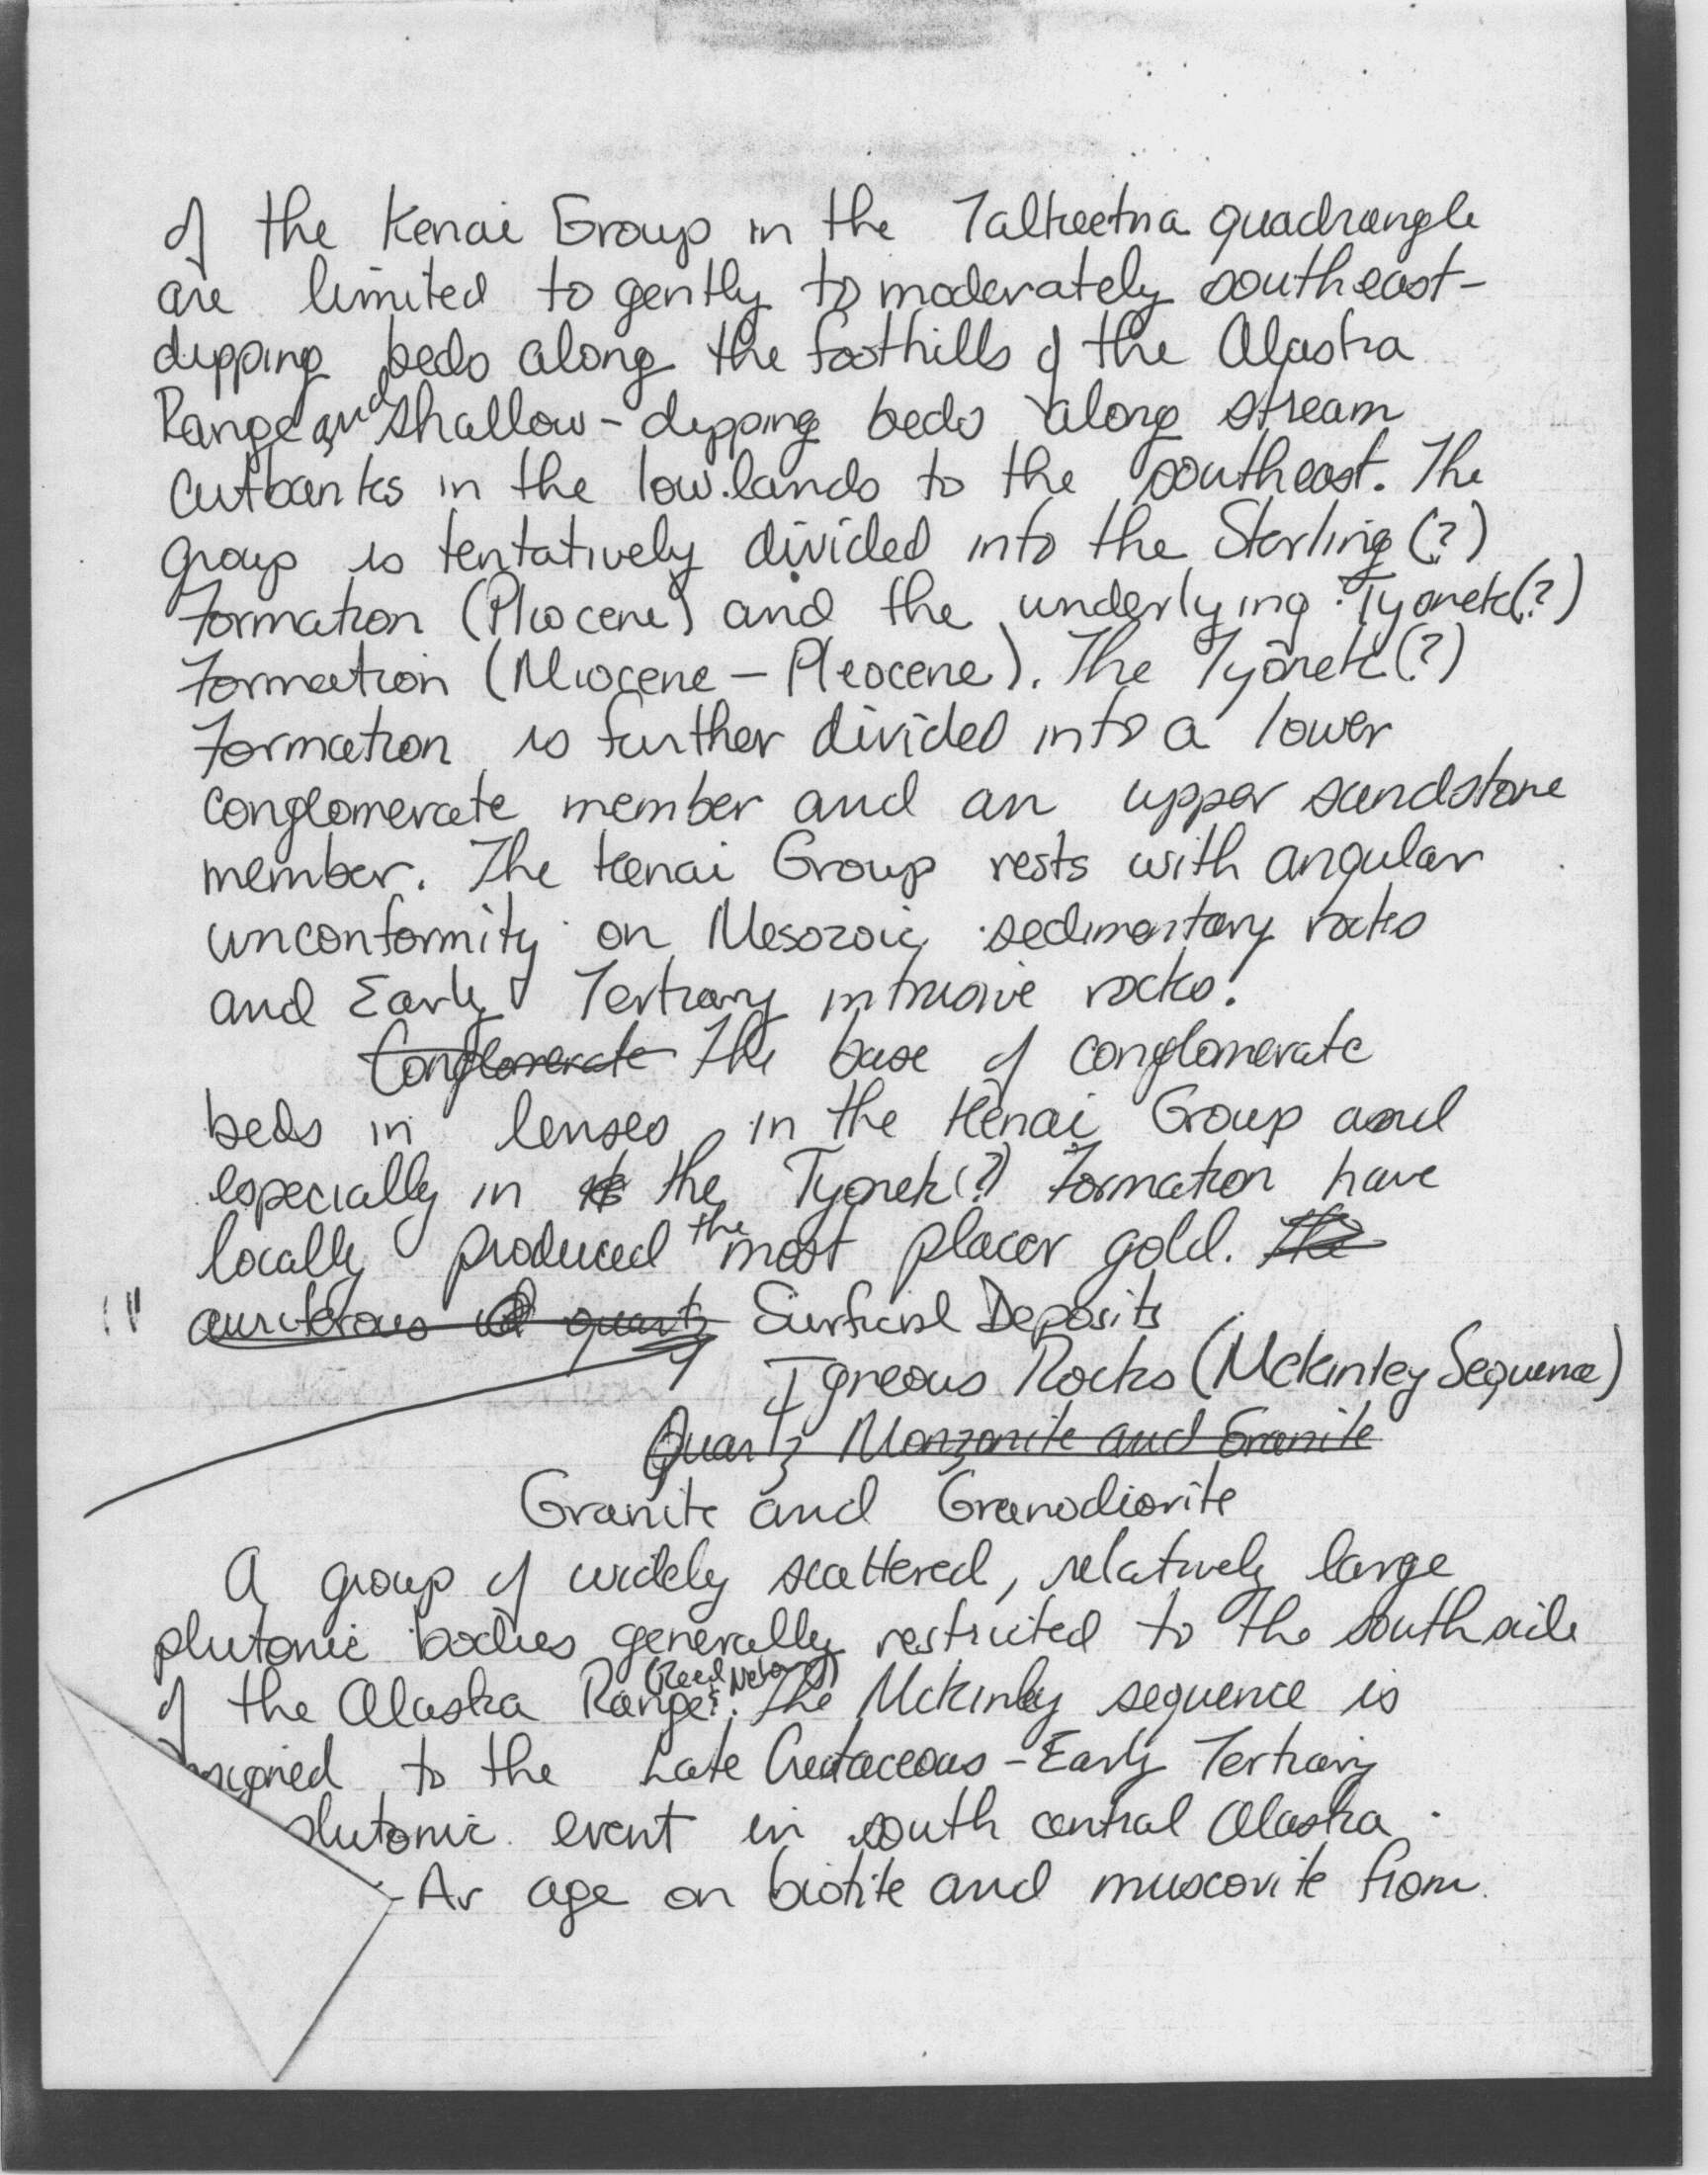 of the Kenai Group in the Talkeetna quadrangle
are limited to gently to moderately southeast-
dipping beds along the foothills of the Alaska
Range and shallow-dipping beds along stream
cutbanks in the lowlands to the southeast. The
group is tentatively divided into the Sterling (?)
Formation (Pliocene) and the underlying Tyonek(?)
Formation (Miocene - Pliocene). The Tyonek (?)
Formation is further divided into a lower
conglomerate member and an upper sandstone
member. The Kenai Group rests with angular
unconformity on Mesozoic sedimentary rocks
and Early Tertiary intrusive rocks.
Conglomerate The base of conglomerate
beds in lenses in the Kenai Group and
especially in the Tyonek (?) Formation have
locally produced the most placer gold. The
auriferous quartz Surficial Deposits
Igneous Rocks (McKinley Sequence)
Quartz Monzonite and Granite
Granite and Granodiorite
A group of widely scattered, relatively large
plutonic bodies generally restricted to the south side
of the Alaska Range (Reed Nelson). The McKinley sequence is
to the Late Cretaceous - Early Tertiary
plutonic event in south central Alaska.
-Ar age on biotite and muscovite from